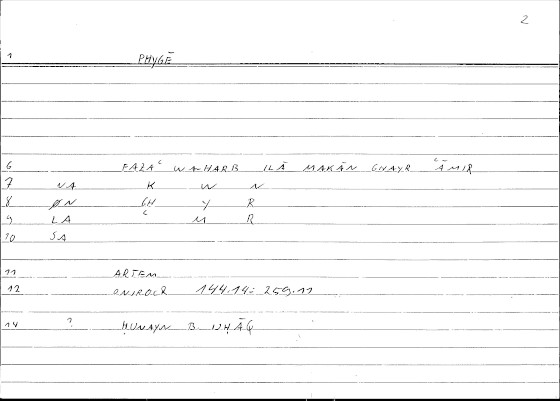 2
1 PHYGĒ
6 FAZAʿ WA-HARB ILĀ MAKĀN GHAYR ʿĀMIR
7 VA K W N
8 ØN GH Y R
9 LA ʿ M R
10 SA
11 ARTEM
12 ONIROCR 144.14 = 259.11
14 ? ḤUNAYN B. ISḤĀQ